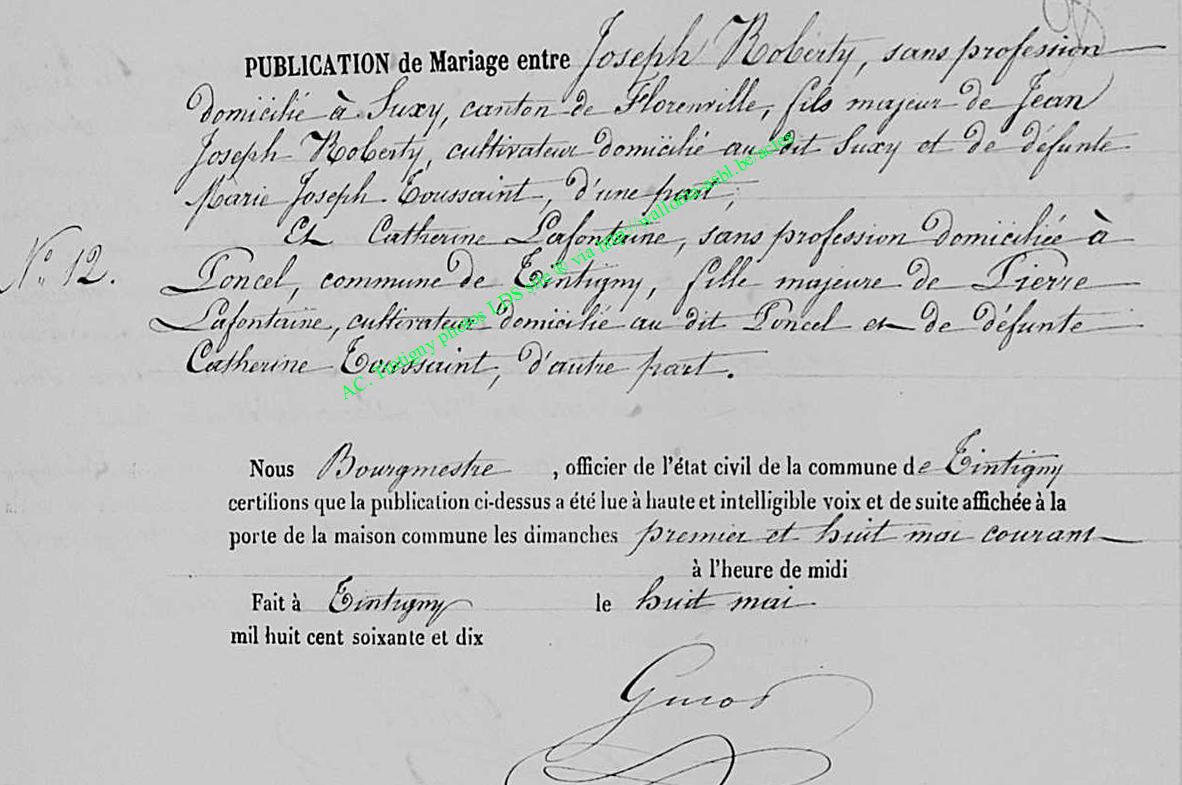 PUBLICATION de Mariage entre Joseph Roberty, sans profession
domicilié à Suxy, canton de Florenville, fils majeur de Jean
Joseph Roberty, cultivateur domicilié au dit Suxy et de défunte
Marie Joseph Toussaint, d'une part;
Et Catherine Lafontaine, sans profession domiciliée à
N° 12.
Poncel, commune de Tintigny, fille majeure de Pierre
Lafontaine, cultivateur domicilié au dit Poncel et de défunte
Catherine Toussaint, d'autre part.
AC. Tintigny photos LDS site ® via http://wallonia-asbl.be/actes
Nous Bourgmestre, officier de l'état civil de la commune de Tintigny
certifions que la publication ci-dessus a été lue à haute et intelligible voix et de suite affichée à la
porte de la maison commune les dimanches premier et huit mai courant
à l'heure de midi
Fait à Tintigny le huit mai
mil huit cent soixante et dix